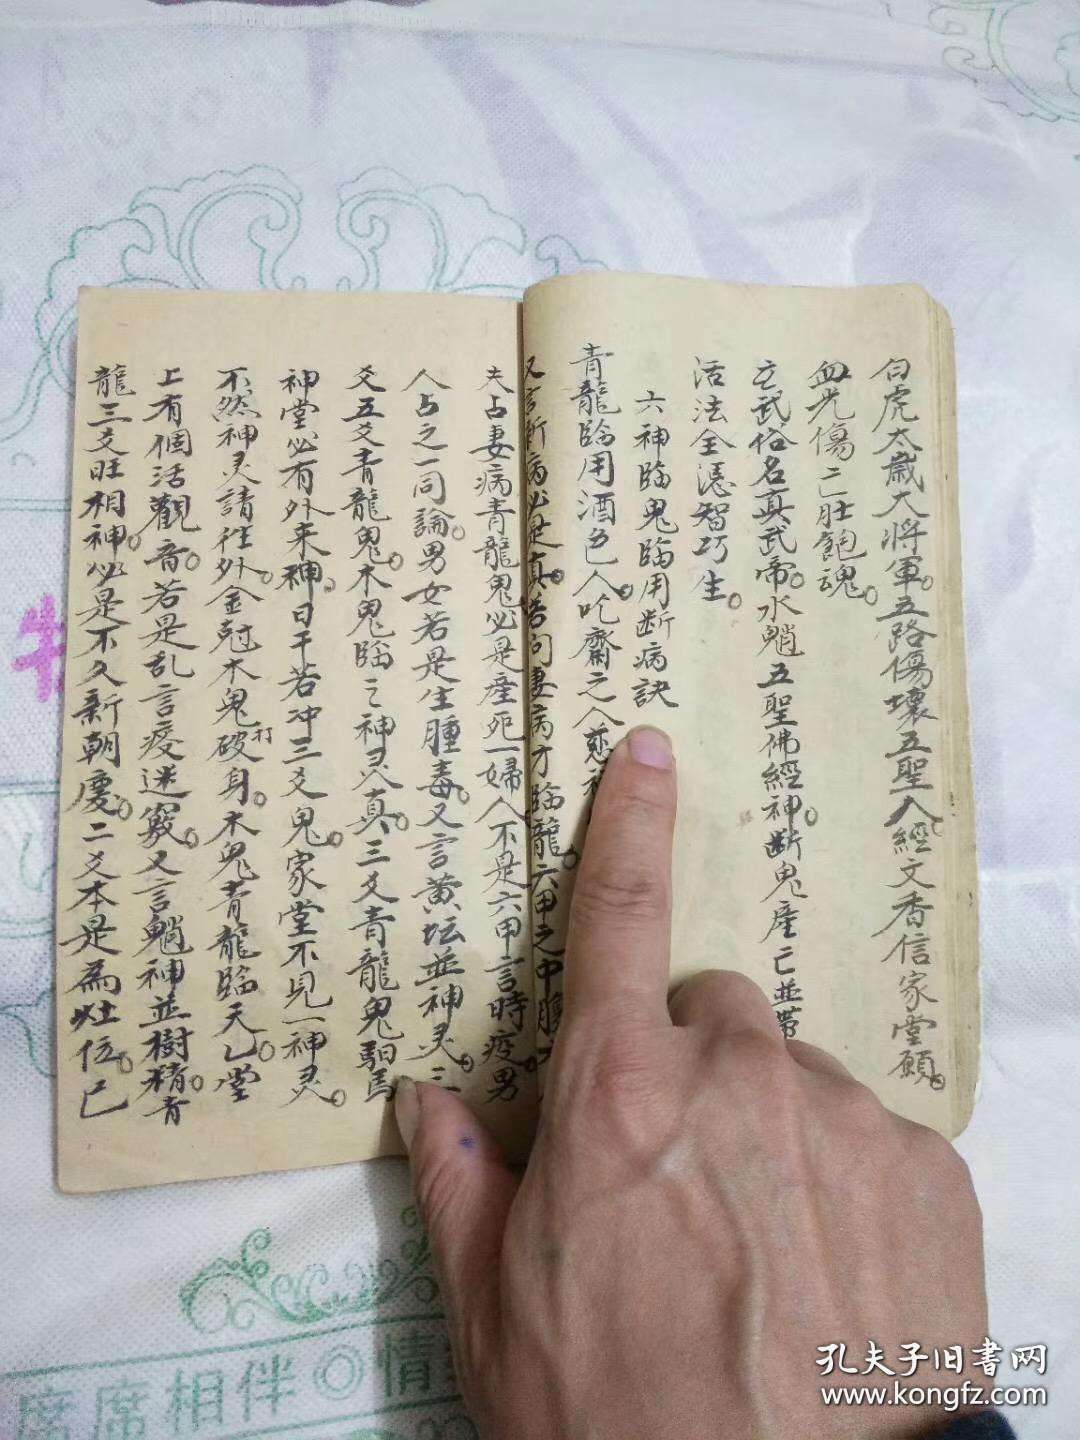 白虎太歲大將軍。五路傷壞五聖入。經文香信家堂願。
血光傷亡肚飽魂。
玄武俗名真武帝。水魈五聖佛經神。斷鬼産亡並帶
活法全憑智巧生。
六神臨鬼臨用断病訣
青龍臨用酒色人。吃齋之人慈
又言新病必是真。若问妻病才臨龍。六甲之中腹
夫占妻病青龍鬼。必是産死一婦人。不是六甲言時疫。男
人占之一同論。男女若是生腫毒。又言黄坛並神灵。三
爻五爻青龍鬼。木鬼臨之神灵真。三爻青龍鬼馹馬
神堂必有外来神。日干若冲三爻鬼。家堂不見一神灵。
不然神灵請往外。金尅木鬼破打身。木鬼青龍臨天乙。堂
上有個活觀音。若是乱言疫迷竅。又言魈神並樹精。青
龍三爻旺相神。必是不久新朝慶。二爻本是為灶伍。已
孔夫子旧書网
www.kongfz.com
席席相伴◎情